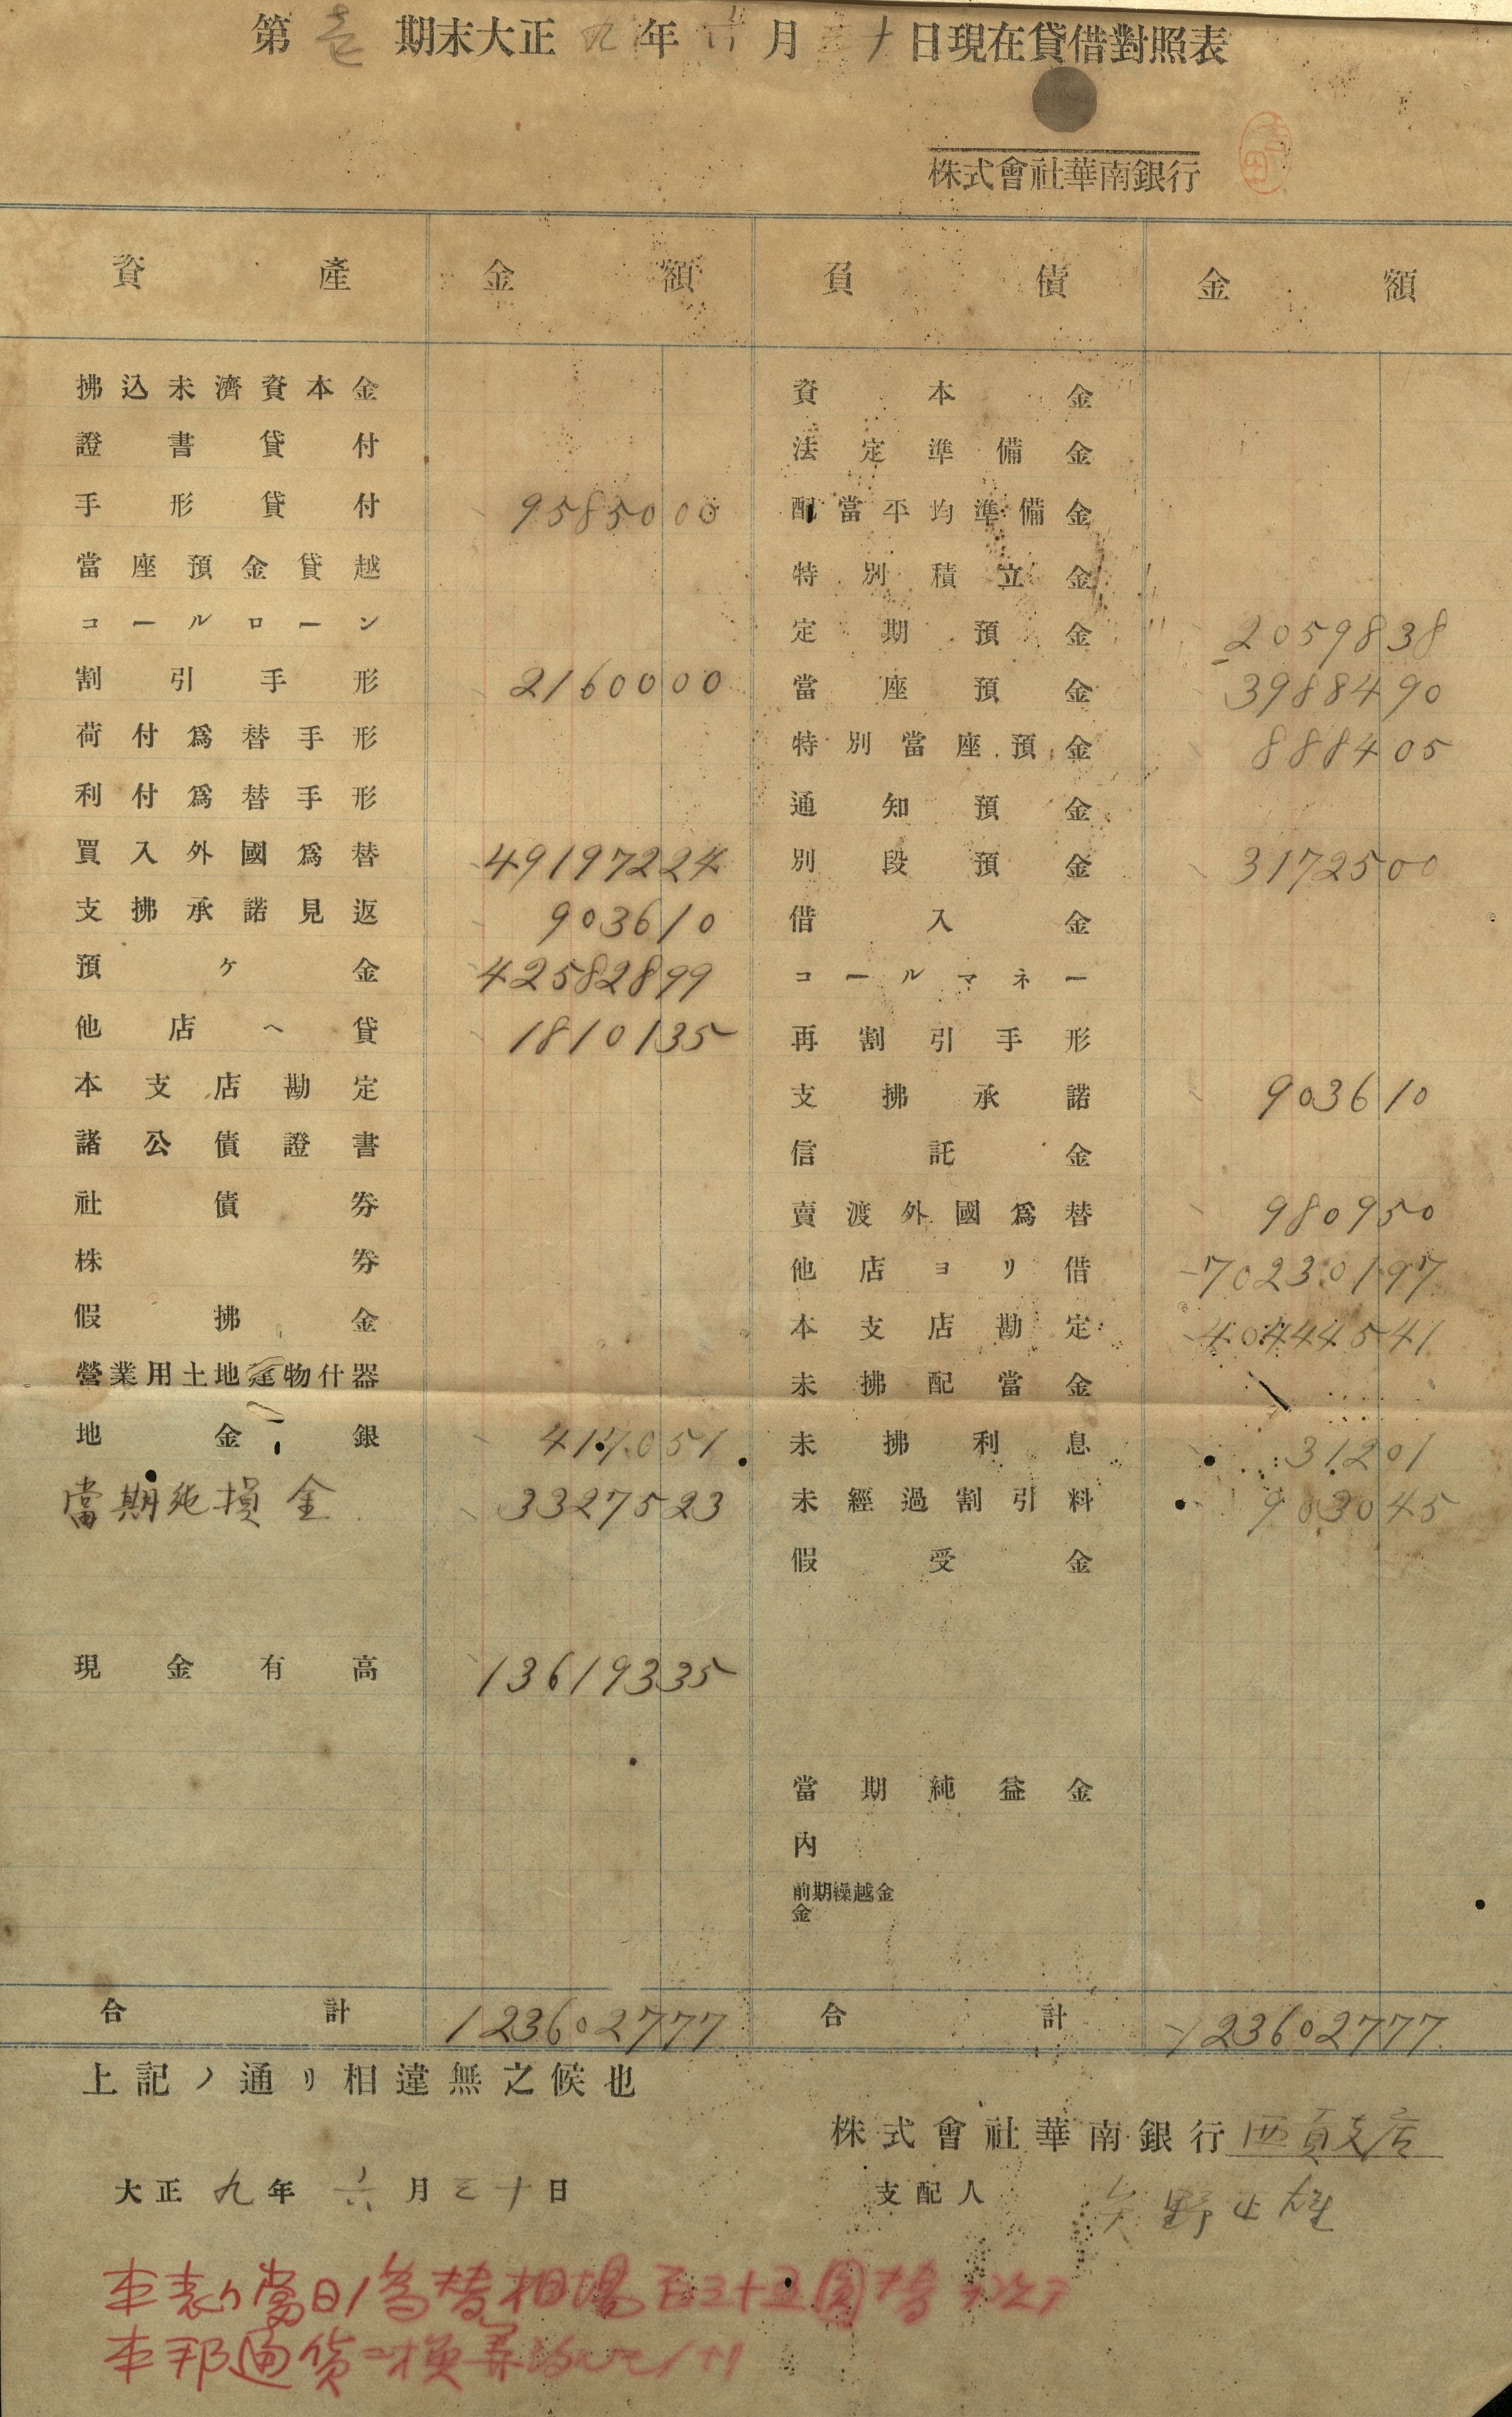 第壱期末大正九年六月三十日現在貸借對照表
株式會社華南銀行
資產 金額 負債 金額
拂込未濟資本金 資本金
證書貸付 法定準備金
手形貸付 9585000 配當平均準備金
當座預金貸越 特別積立金
コールローン 定期預金 2059838
割引手形 2160000 當座預金 3988490
荷付爲替手形 特別當座預金 888405
利付爲替手形 通知預金
買入外國爲替 49197224 別段預金 3172500
支拂承諾見返 903610 借入金
預ケ金 42582899 コールマネー
他店ヘ貸 1810135 再割引手形
本支店勘定 支拂承諾 903610
諸公債證書 信託金
社債券 賣渡外國爲替 980950
株券 他店ヨリ借 70230197
假拂金 本支店勘定 40444541
營業用土地建物什器 未拂配當金
地金銀 417051 未拂利息 31201
當期純損金 3327523 未經過割引料 903045
假受金
現金有高 13619335
當期純益金
内
前期繰越金
金
合計 123602777 合計 123602777
上記ノ通リ相違無之候也
株式會社華南銀行西貢支店
大正九年六月三十日 支配人 矢野正雄
本表ハ當日ノ為替相場百三十五圓替ヲ以テ
本邦通貨ニ換算